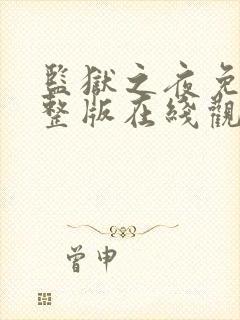 監獄之夜免
整版在綫觀
曾申